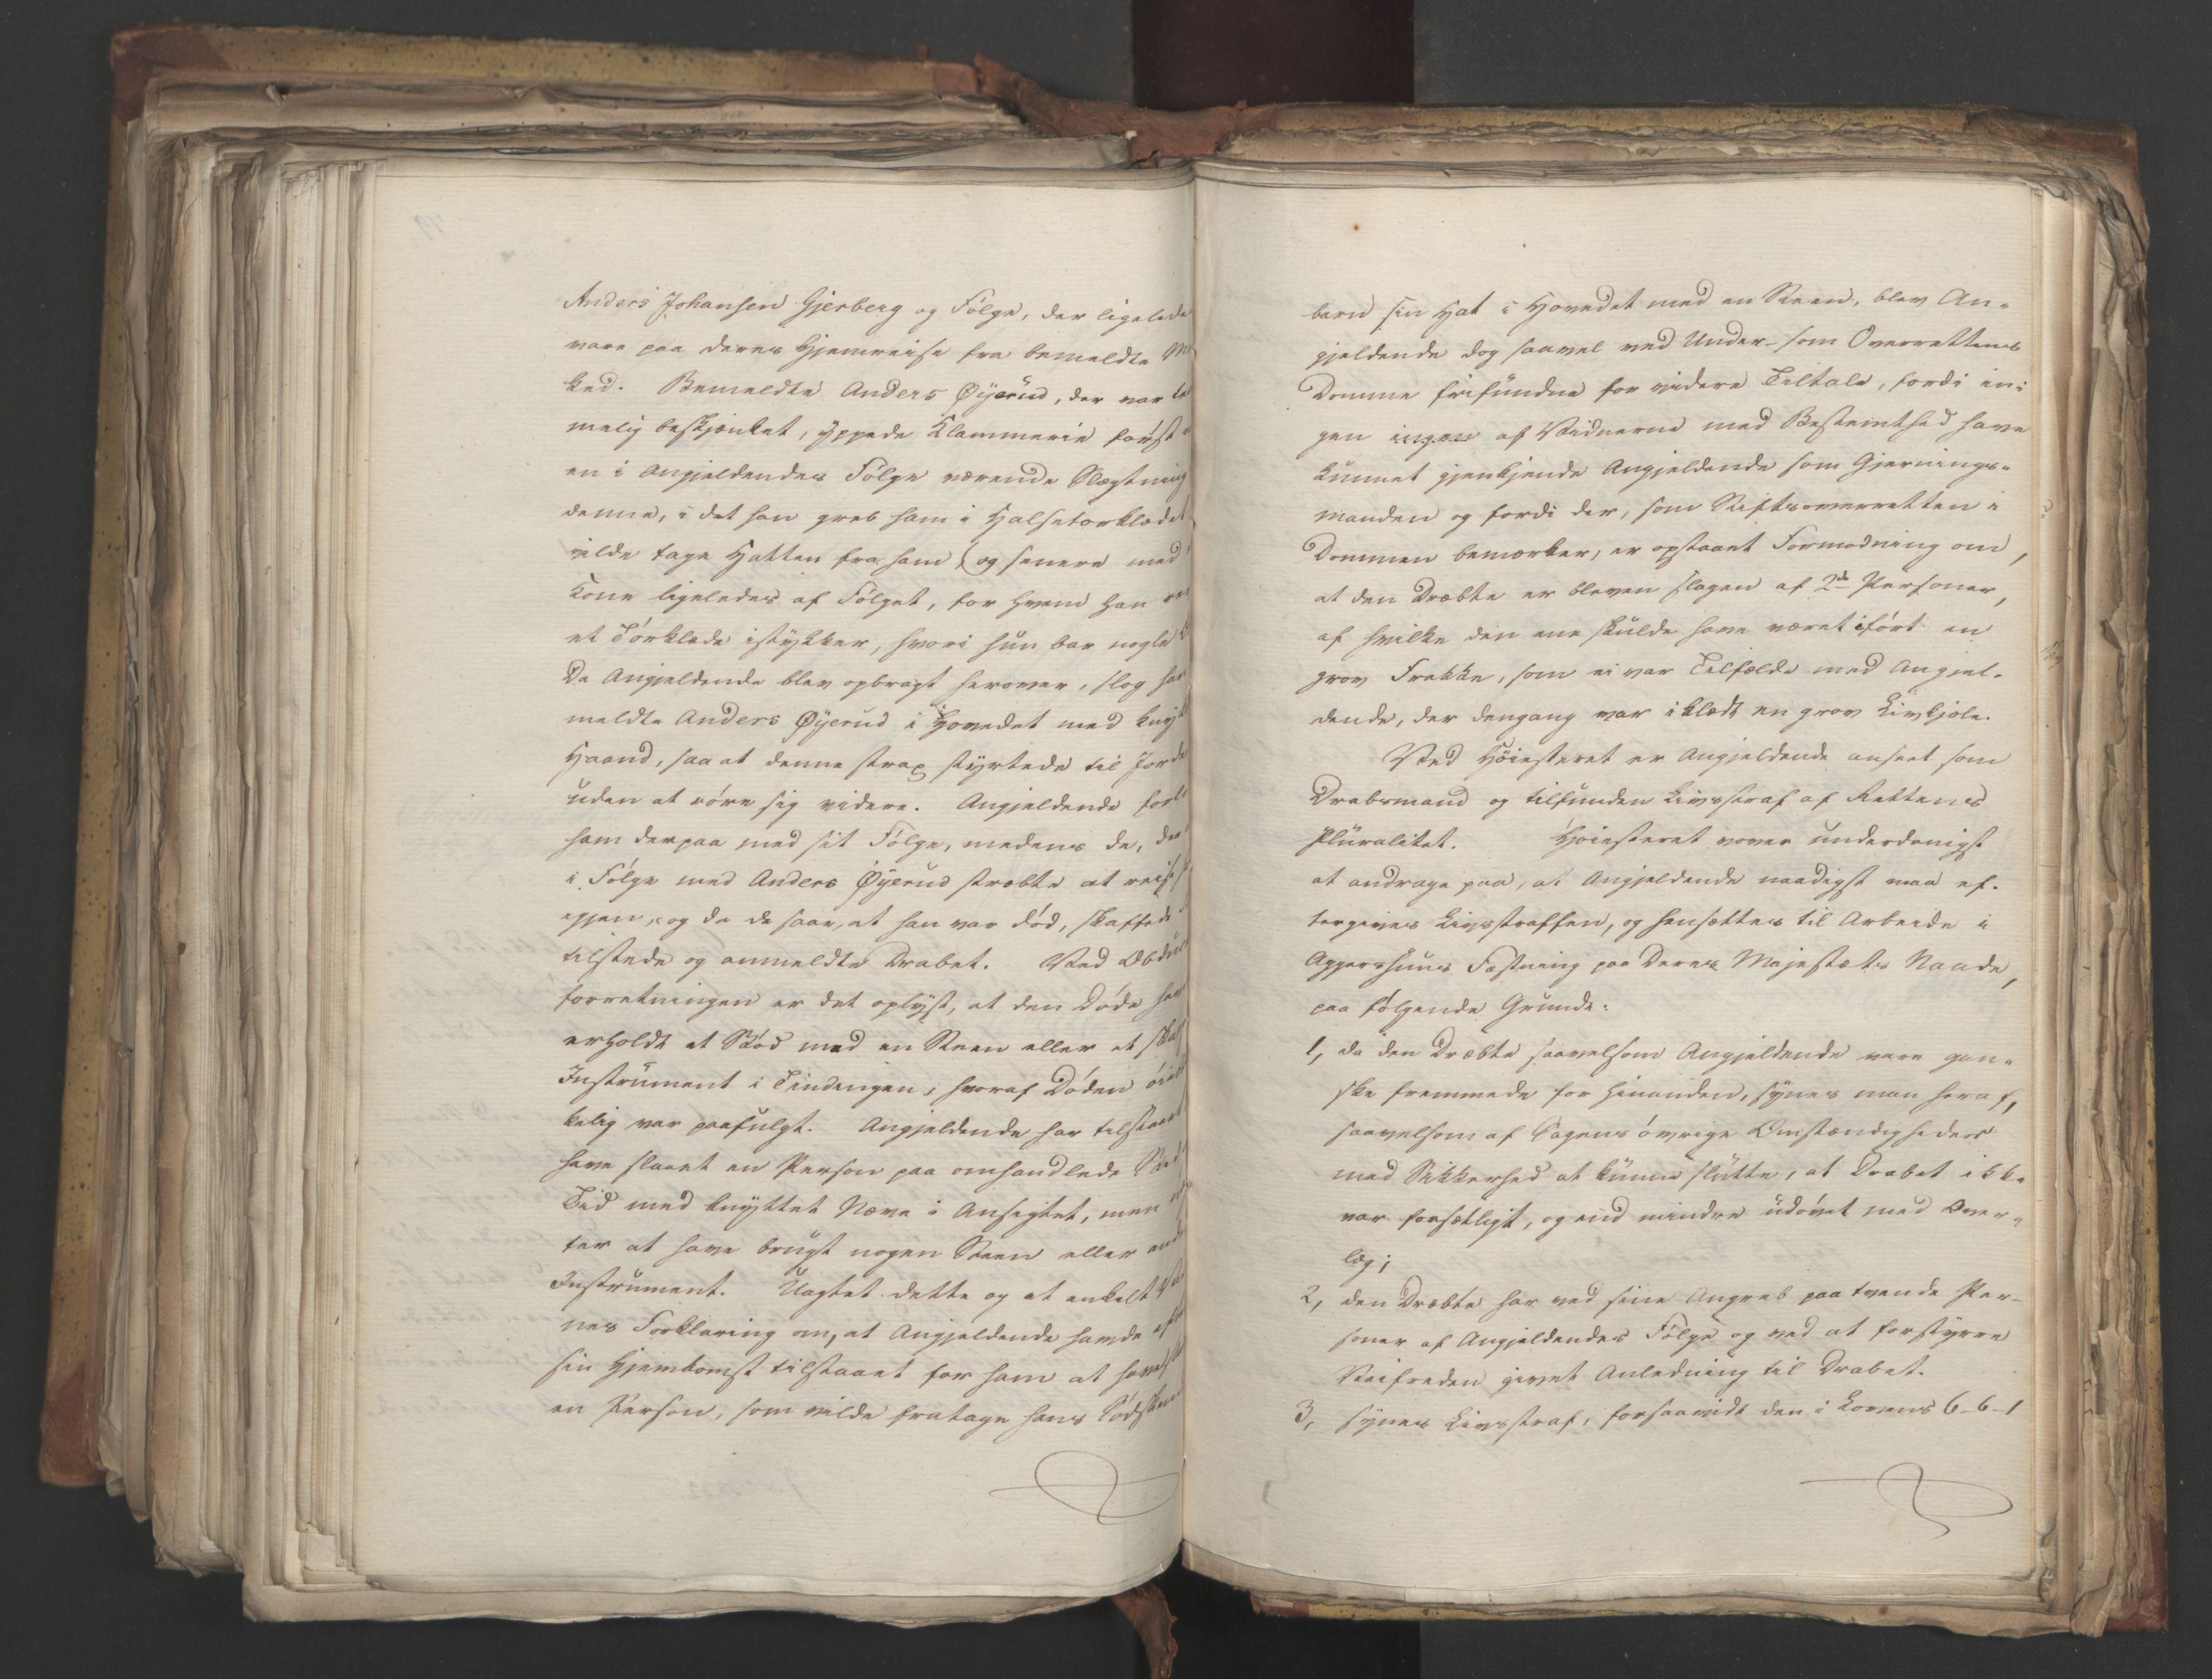 Anders Johansen Gjerberg og Følge, der ligelede
vare paa deres Hjemreise fra bemeldte M
ked. Bemeldte Anders Øÿerud, der var te
melig beskjænket, ÿppede Klammerie først
en i Angjeldendes Følge værende Slægtning
denne, i det han greb ham i Halstørklædet
vilde tage Hatten fra ham (og senere med
Kone ligeledes af Følget, for hvem han
et Tørklæde istÿkker, hvori hun bar nogle
Da Angjeldende blev opbragt herover, slog han
meldte Anders Øÿerud i Hovedet med knÿt
Haand, saa at denne strax stÿrtede til Jorde
uden at røre sig videre. Angjeldende forlo
ham derpaa med sit Følge, medens de, der
i Følge med Anders Øÿerud stræbte at reise
igjen, og da de saae, at han var død, skaffede
tilstede og anmeldte Drabet. Ved Obduc
forretningen er det oplÿst, at den Døde har
erholdt et Stød med en Steen eller et skal
Instrument i Tindingen, hvoraf Døden øieb
kelig var paafulgt. Angjeldende har tilstaaet
have slaaet en Person paa omhandlede Sted
Tid med knÿttet Næve i Ansigtet, men
ter at have brugt nogen Steen eller and
Instrument. Uagtet dette og et enkelt Vid
nes Forklaring om, at Angjeldende havde eft
sin Hjemkomst tilstaaet for ham at have
en Person, som vilde fratage hans Sødsken
barn sin Hat i Hovedet med en Steen, blev An-
gjeldende dog saavel ved Under- som Overrettens
Domme frifunden for videre Tiltale, fordi in-
gen ingen af Vidnerne med Bestemthed have
kunnet gjenkjende Angjeldende som Gjernings-
manden og fordi der, som Stiftsoverretten i
Dommen bemærker, er opstaaet Formodning om,
at den Dræbte er bleven slagen af 2de Personer,
af hvilke den ene skulde have været iført en
grov Frakke, som ei var Tilfælde med Angjel-
dende, der dengang var iklædt en grov Livkjole.
Ved Høiesteret er Angjeldende anseet som
Drabsmand og tilfunden Livsstraf af Rettens
Pluralitet. Høiesteret vover underdanigst
at andrage paa, at Angjeldende naadigst maa ef-
tergives Livsstraffen, og hensættes til Arbeide i
Aggershuus Fæstning paa Deres Majestæts Naade,
paa følgende Grunde:
1, da den Dræbte saavelsom Angjeldende vare gan-
ske fremmede for hinanden, sÿnes man heraf,
saavelsom af Sagens øvrige Omstændigheder
med Sikkerhed at kunne slutte, at Drabet ikke
var forsætligt, og end mindre udøvet med Over-
læg;
2, den Dræbte har ved sine Angreb paa tvende Per-
soner af Angjeldendes Følge og ved at forstÿrre
Veifreden givet Anledning til Drabet.
3, sÿnes Livsstraf, forsaavidt den i Lovens 6-6-1